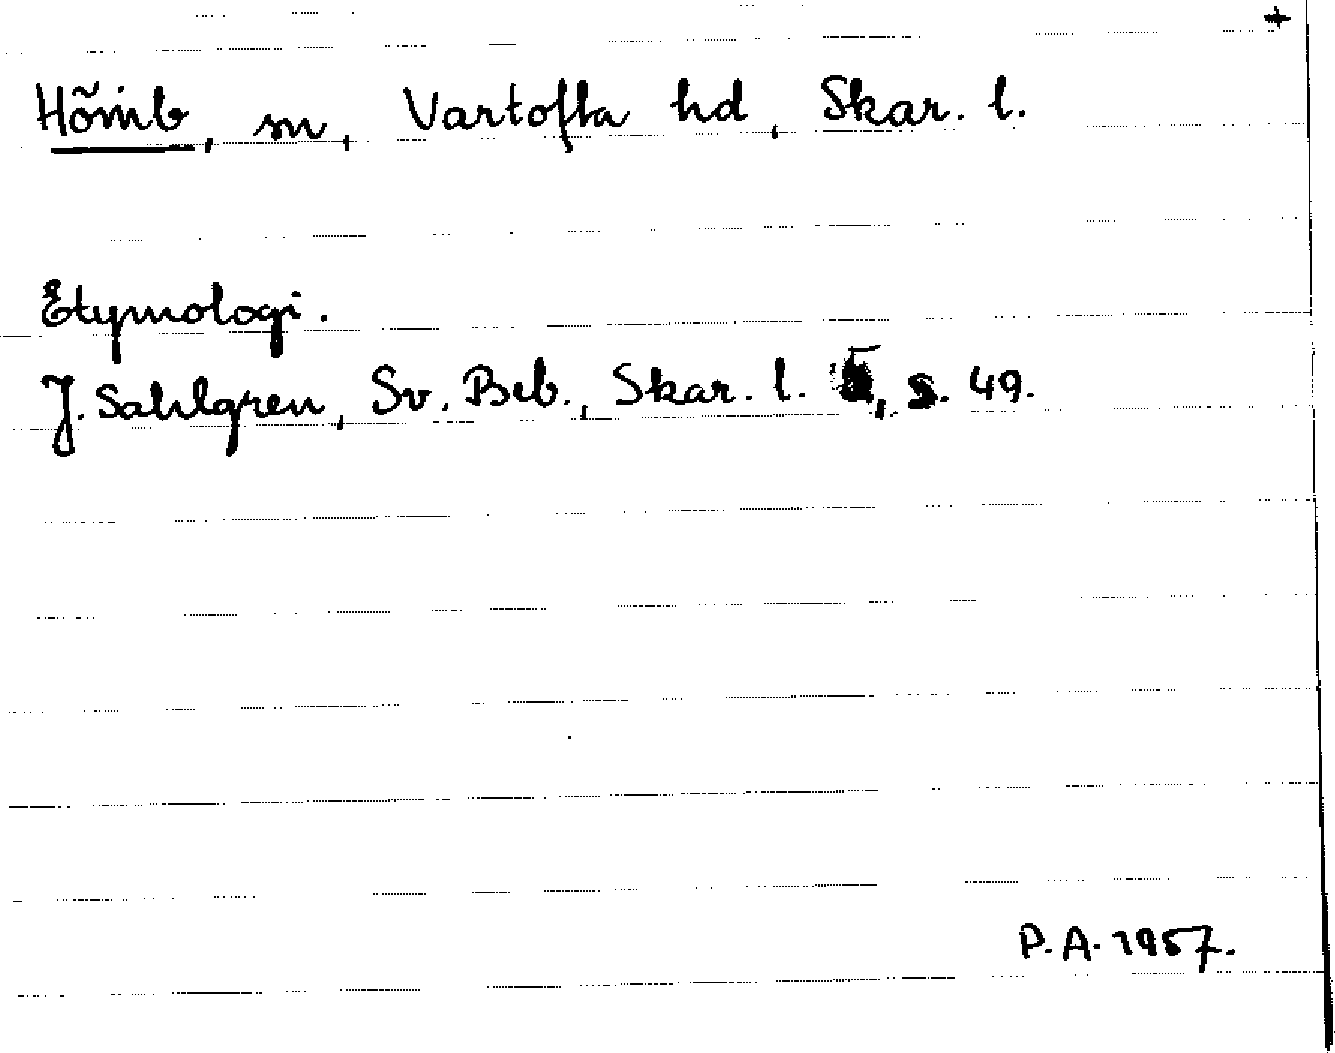 +
Hömb, sn, Vartofta hd, Skar. l.
Etymologi.
J. Sahlgren, Sv. Beb., Skar. l. , s. 49.
P.A. 1957.